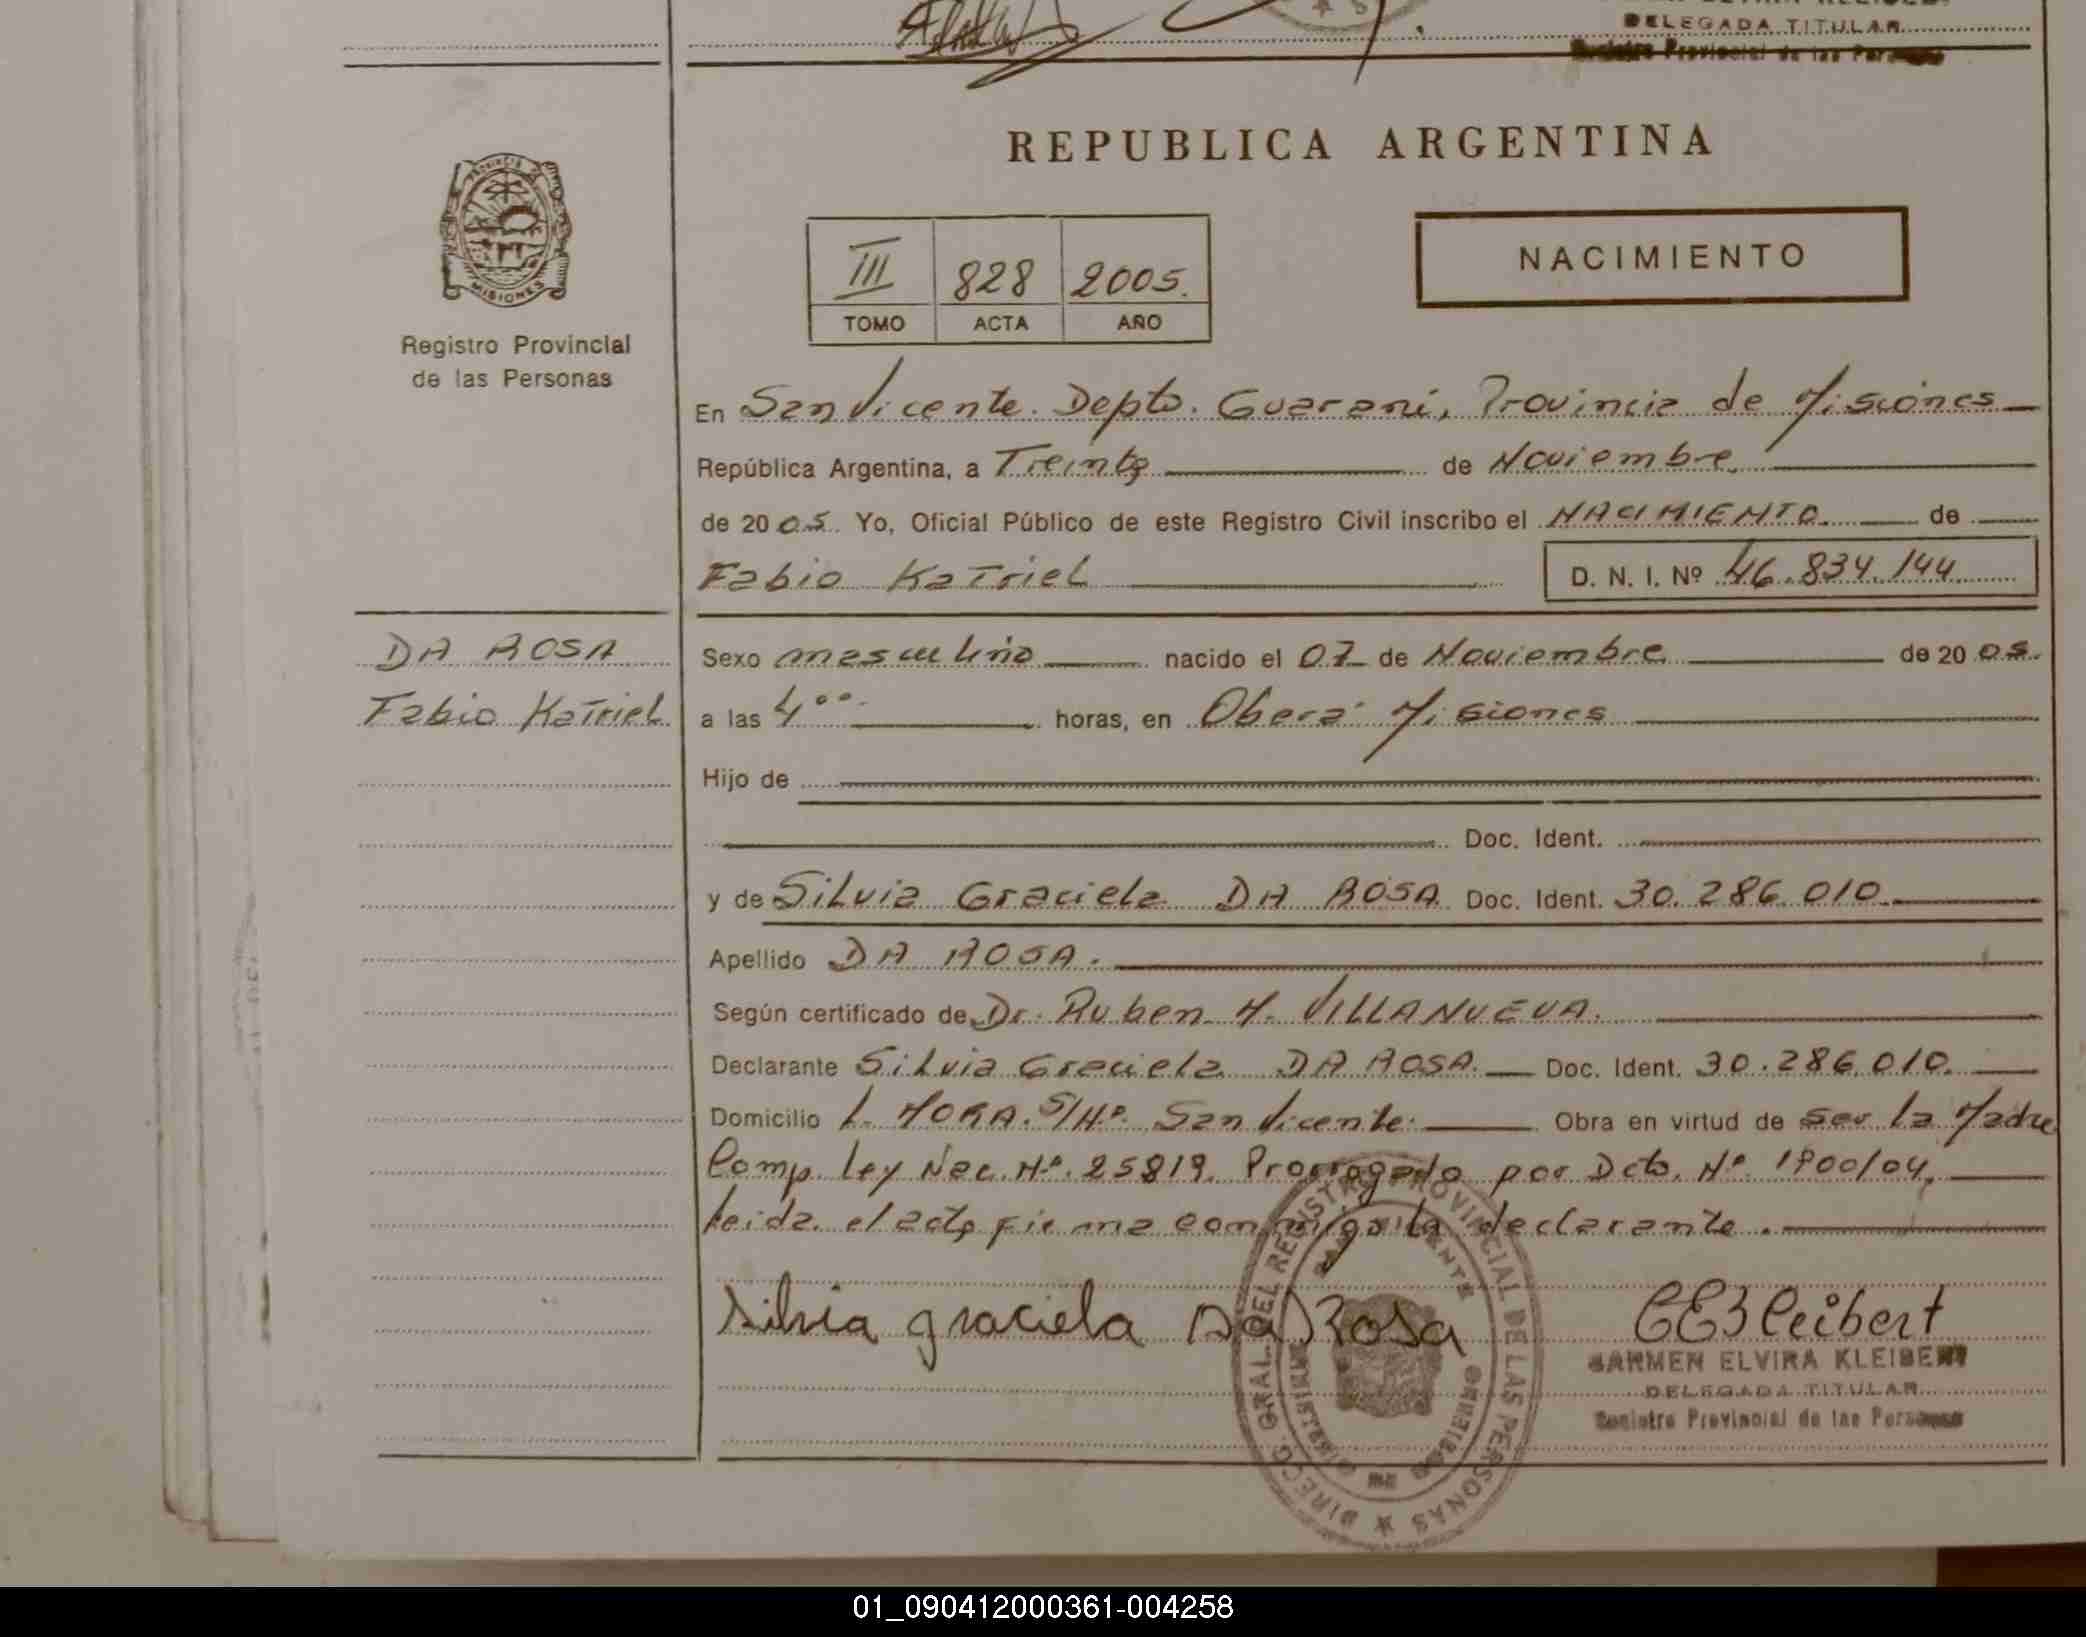 DELEGADA TITULAR
Registro Provincial de las Personas
PROVINCIA DE
MISIONES
Registro Provincial
de las Personas
REPUBLICA ARGENTINA
III 828 2005.
TOMO ACTA AÑO
NACIMIENTO
En San Vicente. Depto. Guarani, Provincia de Misiones
República Argentina, a Treinta de Noviembre
de 20 05. Yo, Oficial Público de este Registro Civil inscribo el NACIMIENTO de
Fabio Katriel D. N. I. Nº 46.834.144
DA ROSA
Fabio Katriel
Sexo masculino nacido el 07 de Noviembre de 20 05.
a las 4°° horas, en Oberá Misiones
Hijo de
Doc. Ident.
y de Silvia Graciela DA ROSA Doc. Ident. 30.286.010.
Apellido DA ROSA.
Según certificado de Dr. Ruben H. VILLANUEVA.
Declarante Silvia Graciela DA ROSA. Doc. Ident. 30.286.010.
Domicilio L. MORA. S/Nº. San Vicente. Obra en virtud de ser la Madre
Comp. Ley Nac. Nº. 25819. Prorrogado por Dcto. Nº. 1900/04.
Leida el acta firma conmigo la declarante.
Silvia graciela Da Rosa
CEKleibert
CARMEN ELVIRA KLEIBERT
DELEGADA TITULAR
Registro Provincial de las Personas
DIRECC. GRAL. DEL REGISTRO PROVINCIAL DE LAS PERSONAS
01_090412000361-004258